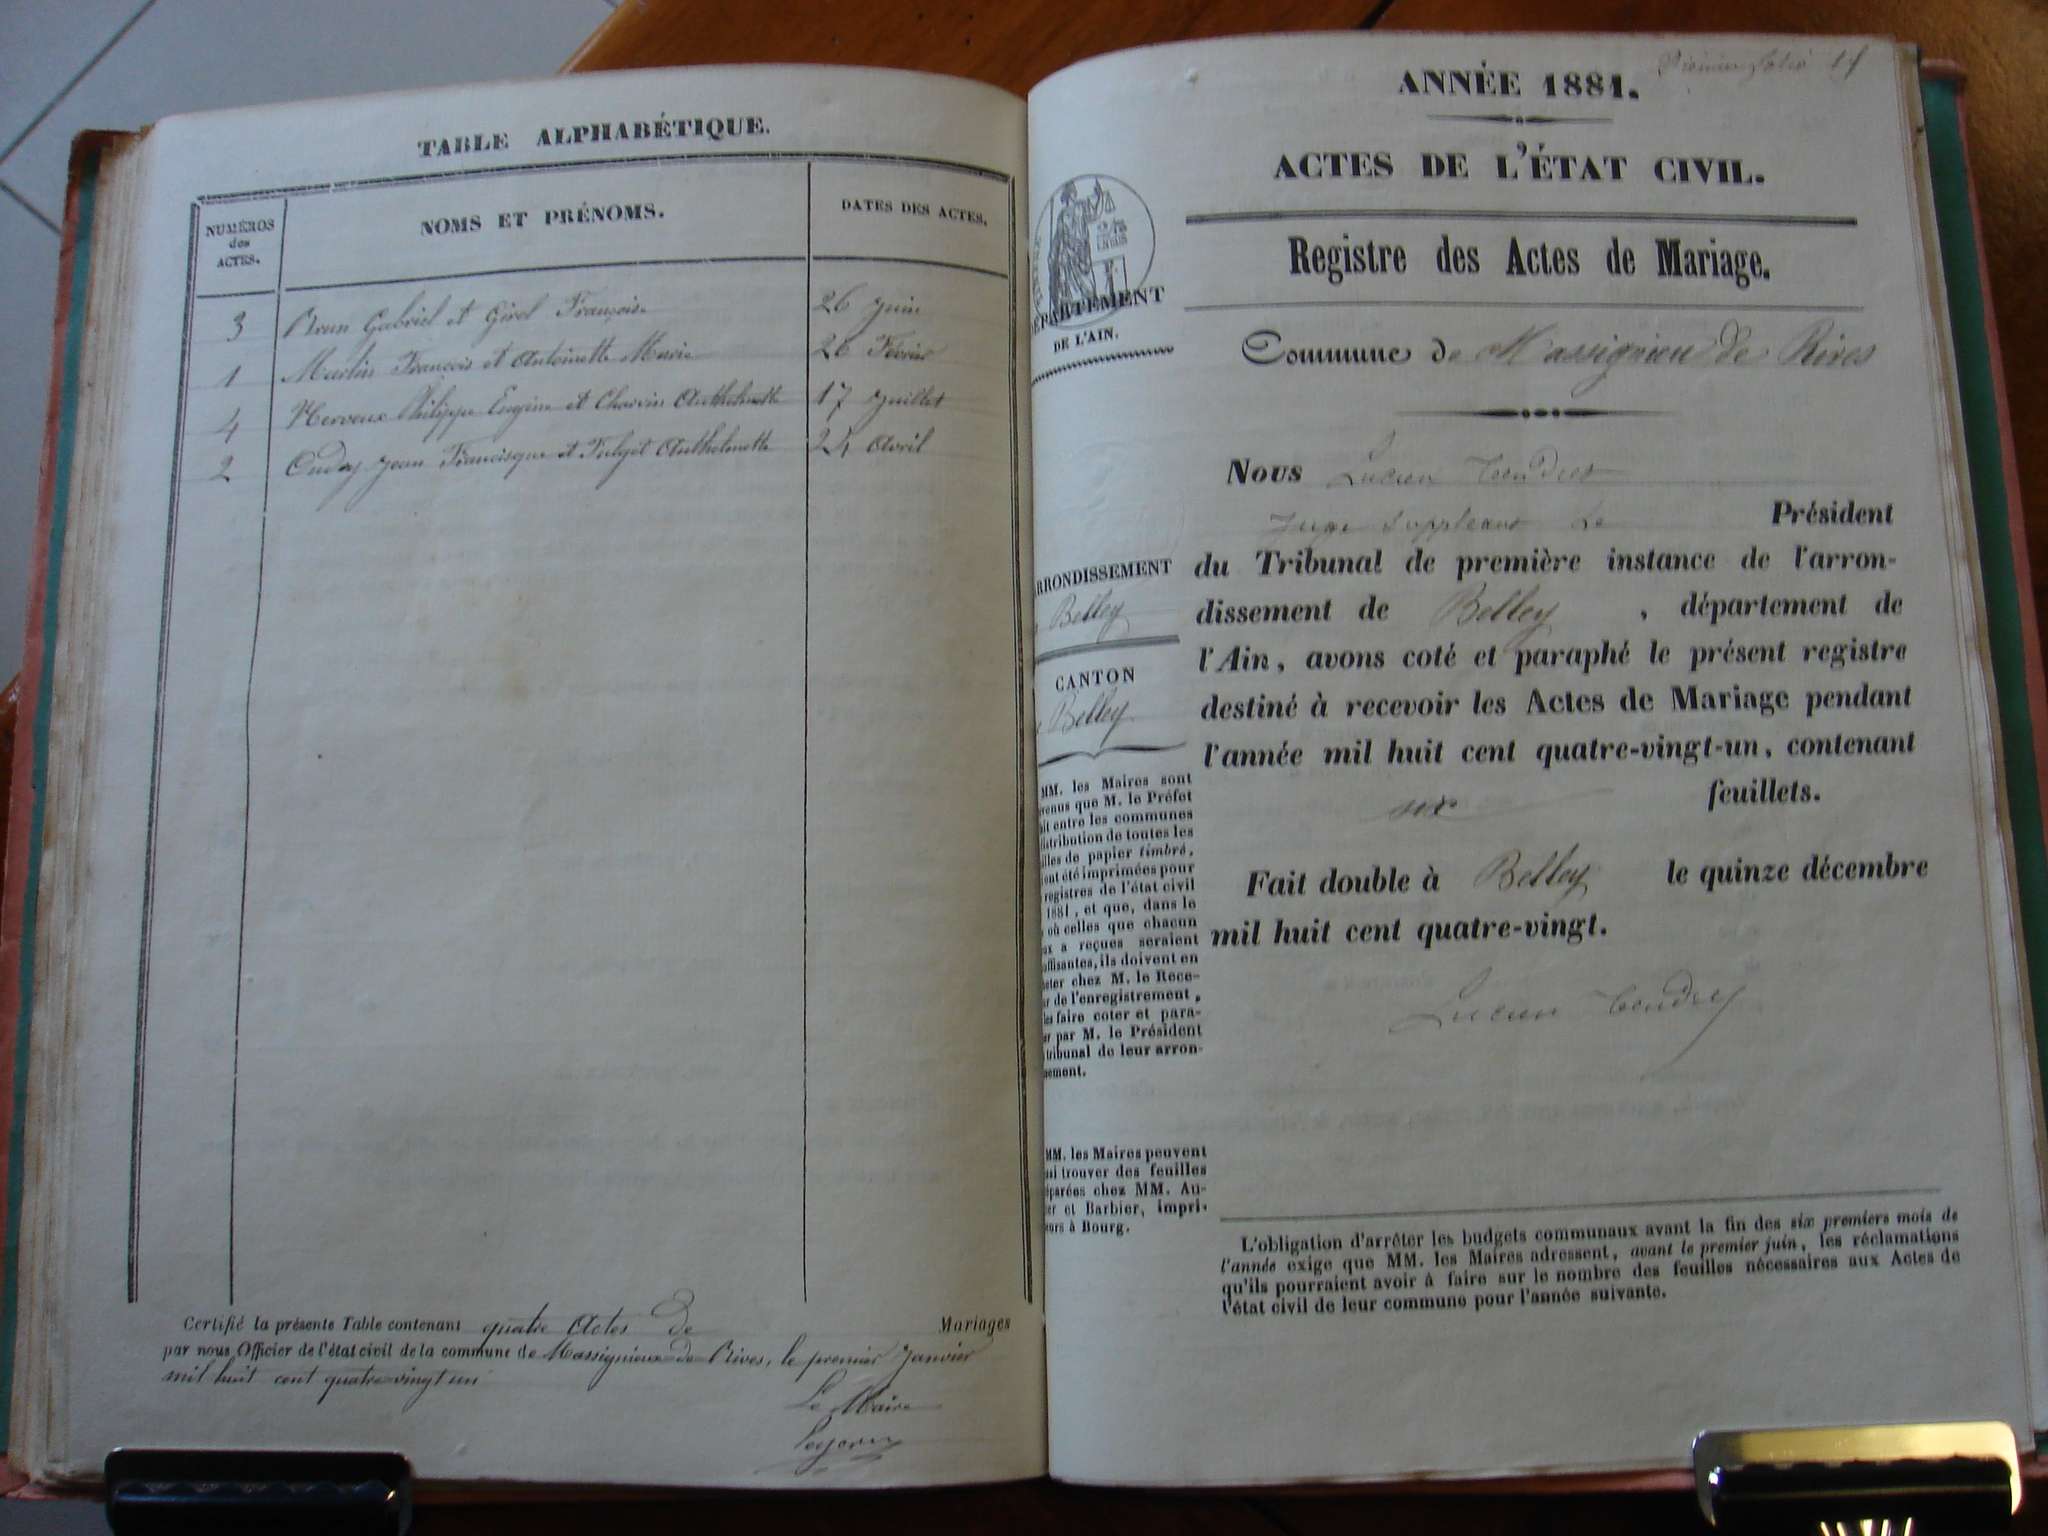 TABLE ALPHABÉTIQUE.
NUMÉROS
des
ACTES.
NOMS ET PRÉNOMS.
DATES DES ACTES.
3 Brun Gabriel et Girel François 26 Juin
1 Martin François et Antoinette Marie 26 Février
4 Nerveux Philippe Eugène et Charvin Anthelmette 17 Juillet
2 Jean Francisque et Anthelmette 24 Avril
Certifié la présente Table contenant quatre Actes de Mariages
par nous Officier de l'état civil de la commune de Massignieux de Rives, le premier Janvier
mil huit cent quatre vingt un
Le Maire
Premier folio
ANNÉE 1881.
ACTES DE L'ÉTAT CIVIL.
Registre des Actes de Mariage.
DÉPARTEMENT
DE L'AIN.
Commune de Massignieu de Rives
Nous Lucien Tendret
Juge Suppléant Le Président
du Tribunal de première instance de l'arron-
dissement de Belley, département de
l'Ain, avons coté et paraphé le présent registre
destiné à recevoir les Actes de Mariage pendant
l'année mil huit cent quatre-vingt-un, contenant
six feuillets.
Fait double à Belley le quinze décembre
mil huit cent quatre-vingt.
Lucien Tendret
RRONDISSEMENT
Belley
CANTON
Belley
MM. les Maires sont
venus que M. le Préfet
ait entre les communes
istribution de toutes les
illes de papier timbré,
ont été imprimées pour
registres de l'état civil
1881, et que, dans le
où celles que chacun
ux a reçues seraient
uffisantes, ils doivent en
eter chez M. le Rece-
ur de l'enregistrement,
les faire coter et para-
er par M. le Président
tribunal de leur arron-
sement.
MM. les Maires peuvent
ui trouver des feuilles
éparées chez MM. Au-
er et Barbier, impri-
eurs à Bourg.
L'obligation d'arrêter les budgets communaux avant la fin des six premiers mois de
l'année exige que MM. les Maires adressent, avant le premier juin, les réclamations
qu'ils pourraient avoir à faire sur le nombre des feuilles nécessaires aux Actes de
l'état civil de leur commune pour l'année suivante.